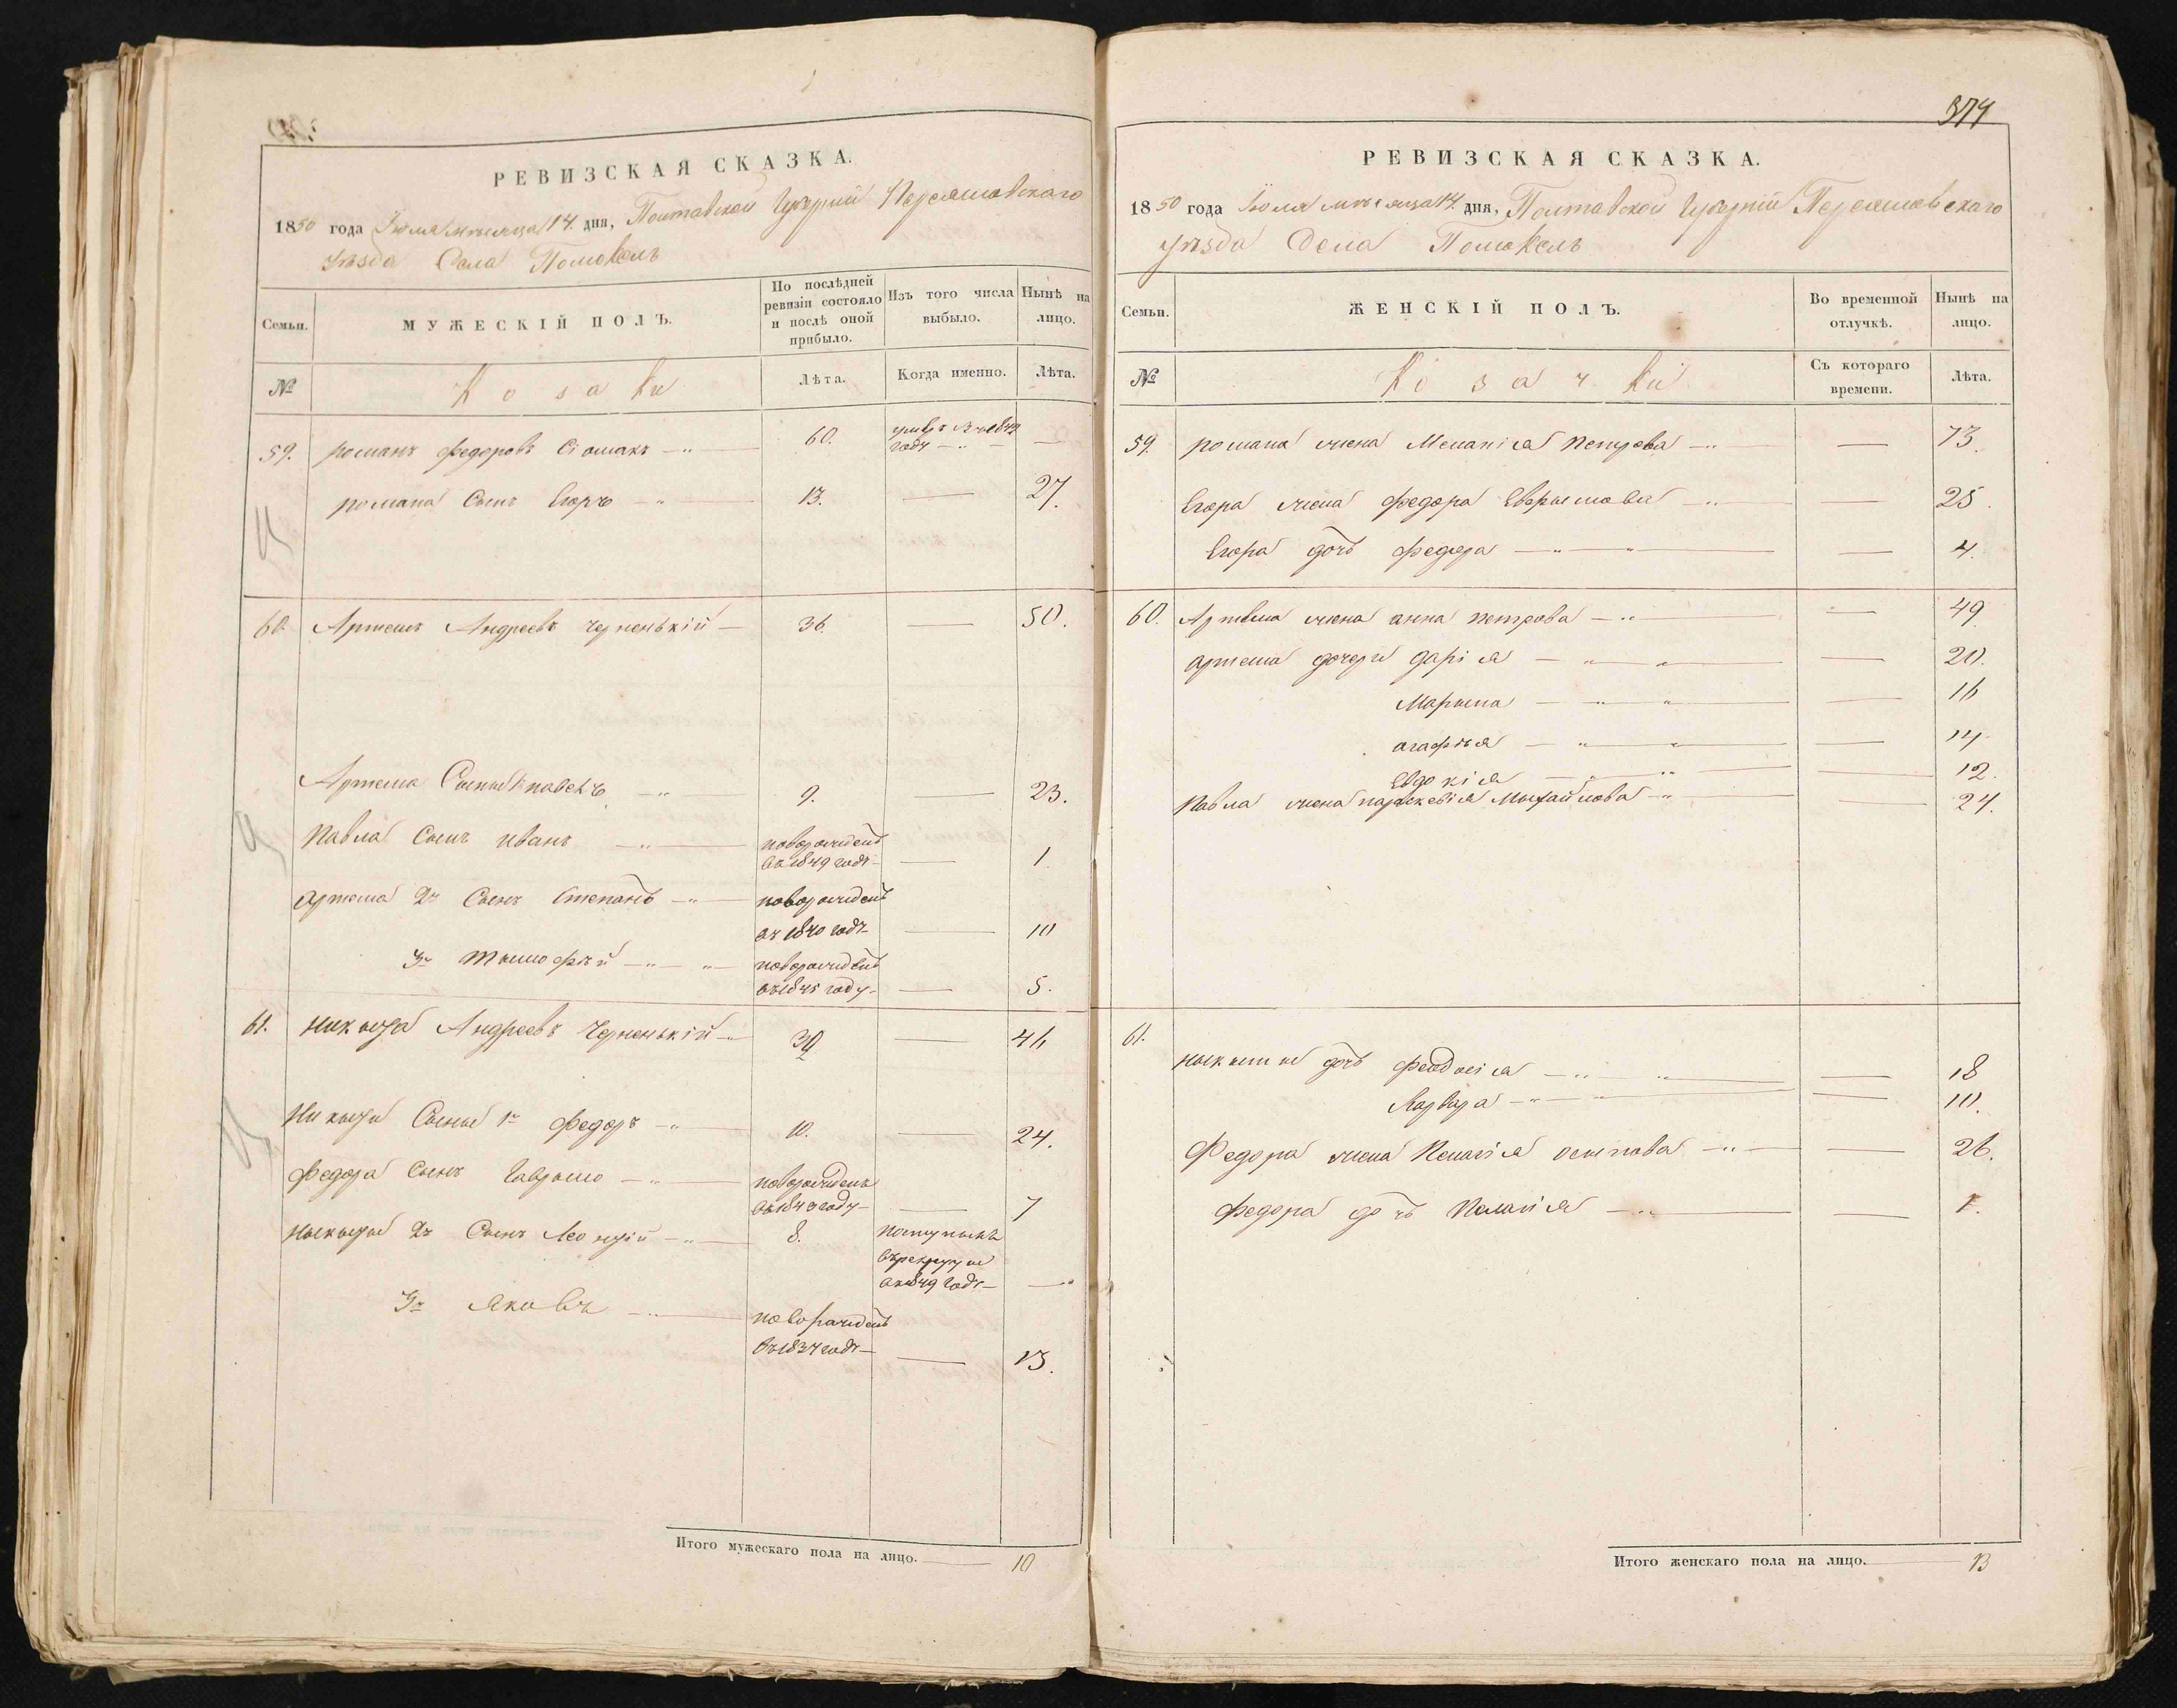 РЕВИЗСКАЯ СКАЗКА.
1850 года Іюля мѣсяца 14 дня, Полтавской Губерніи Переяславскаго
уѣзда Села Помокель
Семьи.
МУЖЕСКІЙ ПОЛЪ.
По послѣдней ревизіи состояло и послѣ оной прибыло.
Изъ того числа выбыло.
Нынѣ на лицо.
№
Козаки
Лѣта.
Когда именно.
Лѣта.
59. романъ федоровъ — 60. умер въ году —
романа Сынъ Егоръ — 13. — 27.
60. Артемъ Андреевъ Черненькій — 36. — 50.
Артема Сыны павелъ — 9. — 23.
Павла Сынъ иванъ — новорожденъ
въ 1849 годѣ — 1
артема 2й Сынъ Степанъ — новорожденъ
въ 1840 годѣ — 10
3й тимофѣй — новорожденъ
въ 1845 году — 5.
61. никита Андреевъ Черненькій — 32 — 46
Никиты Сыны 1й федоръ — 10. — 24.
федора Сынъ Гаврыло — новорожденъ
въ 1843 году — 7
никиты 2й Сынъ Леонтій — 8. поступилъ
въ рекруты
въ 1849 годѣ —
3й Яковъ — новорожденъ
въ 1837 годѣ — 13.
Итого мужескаго пола на лицо. — 10
374
РЕВИЗСКАЯ СКАЗКА.
1850 года Іюля мѣсяца 14 дня, Полтавской Губерніи Переяславскаго
уѣзда Села Помокель
Семьи.
ЖЕНСКІЙ ПОЛЪ.
Во временной отлучкѣ.
Нынѣ на лицо.
№
Козачки
Съ котораго времени.
Лѣта.
59. романа жена Меланія петрова — 73.
Егора жена федора — 25.
Егора дочь федора — 4.
60. Артема жена анна петрова — 49
артема дочери дарія — 20.
Марина — 16
агафія — 14
Евдокія — 12.
Павла жена параскевія Михайлова — 24.
61.
никиты дочь феодосія — 18
Варвара — 10.
Федора жена Пелагія осипова — 26.
федора дочь Пелагія — 1.
Итого женскаго пола на лицо. — 13